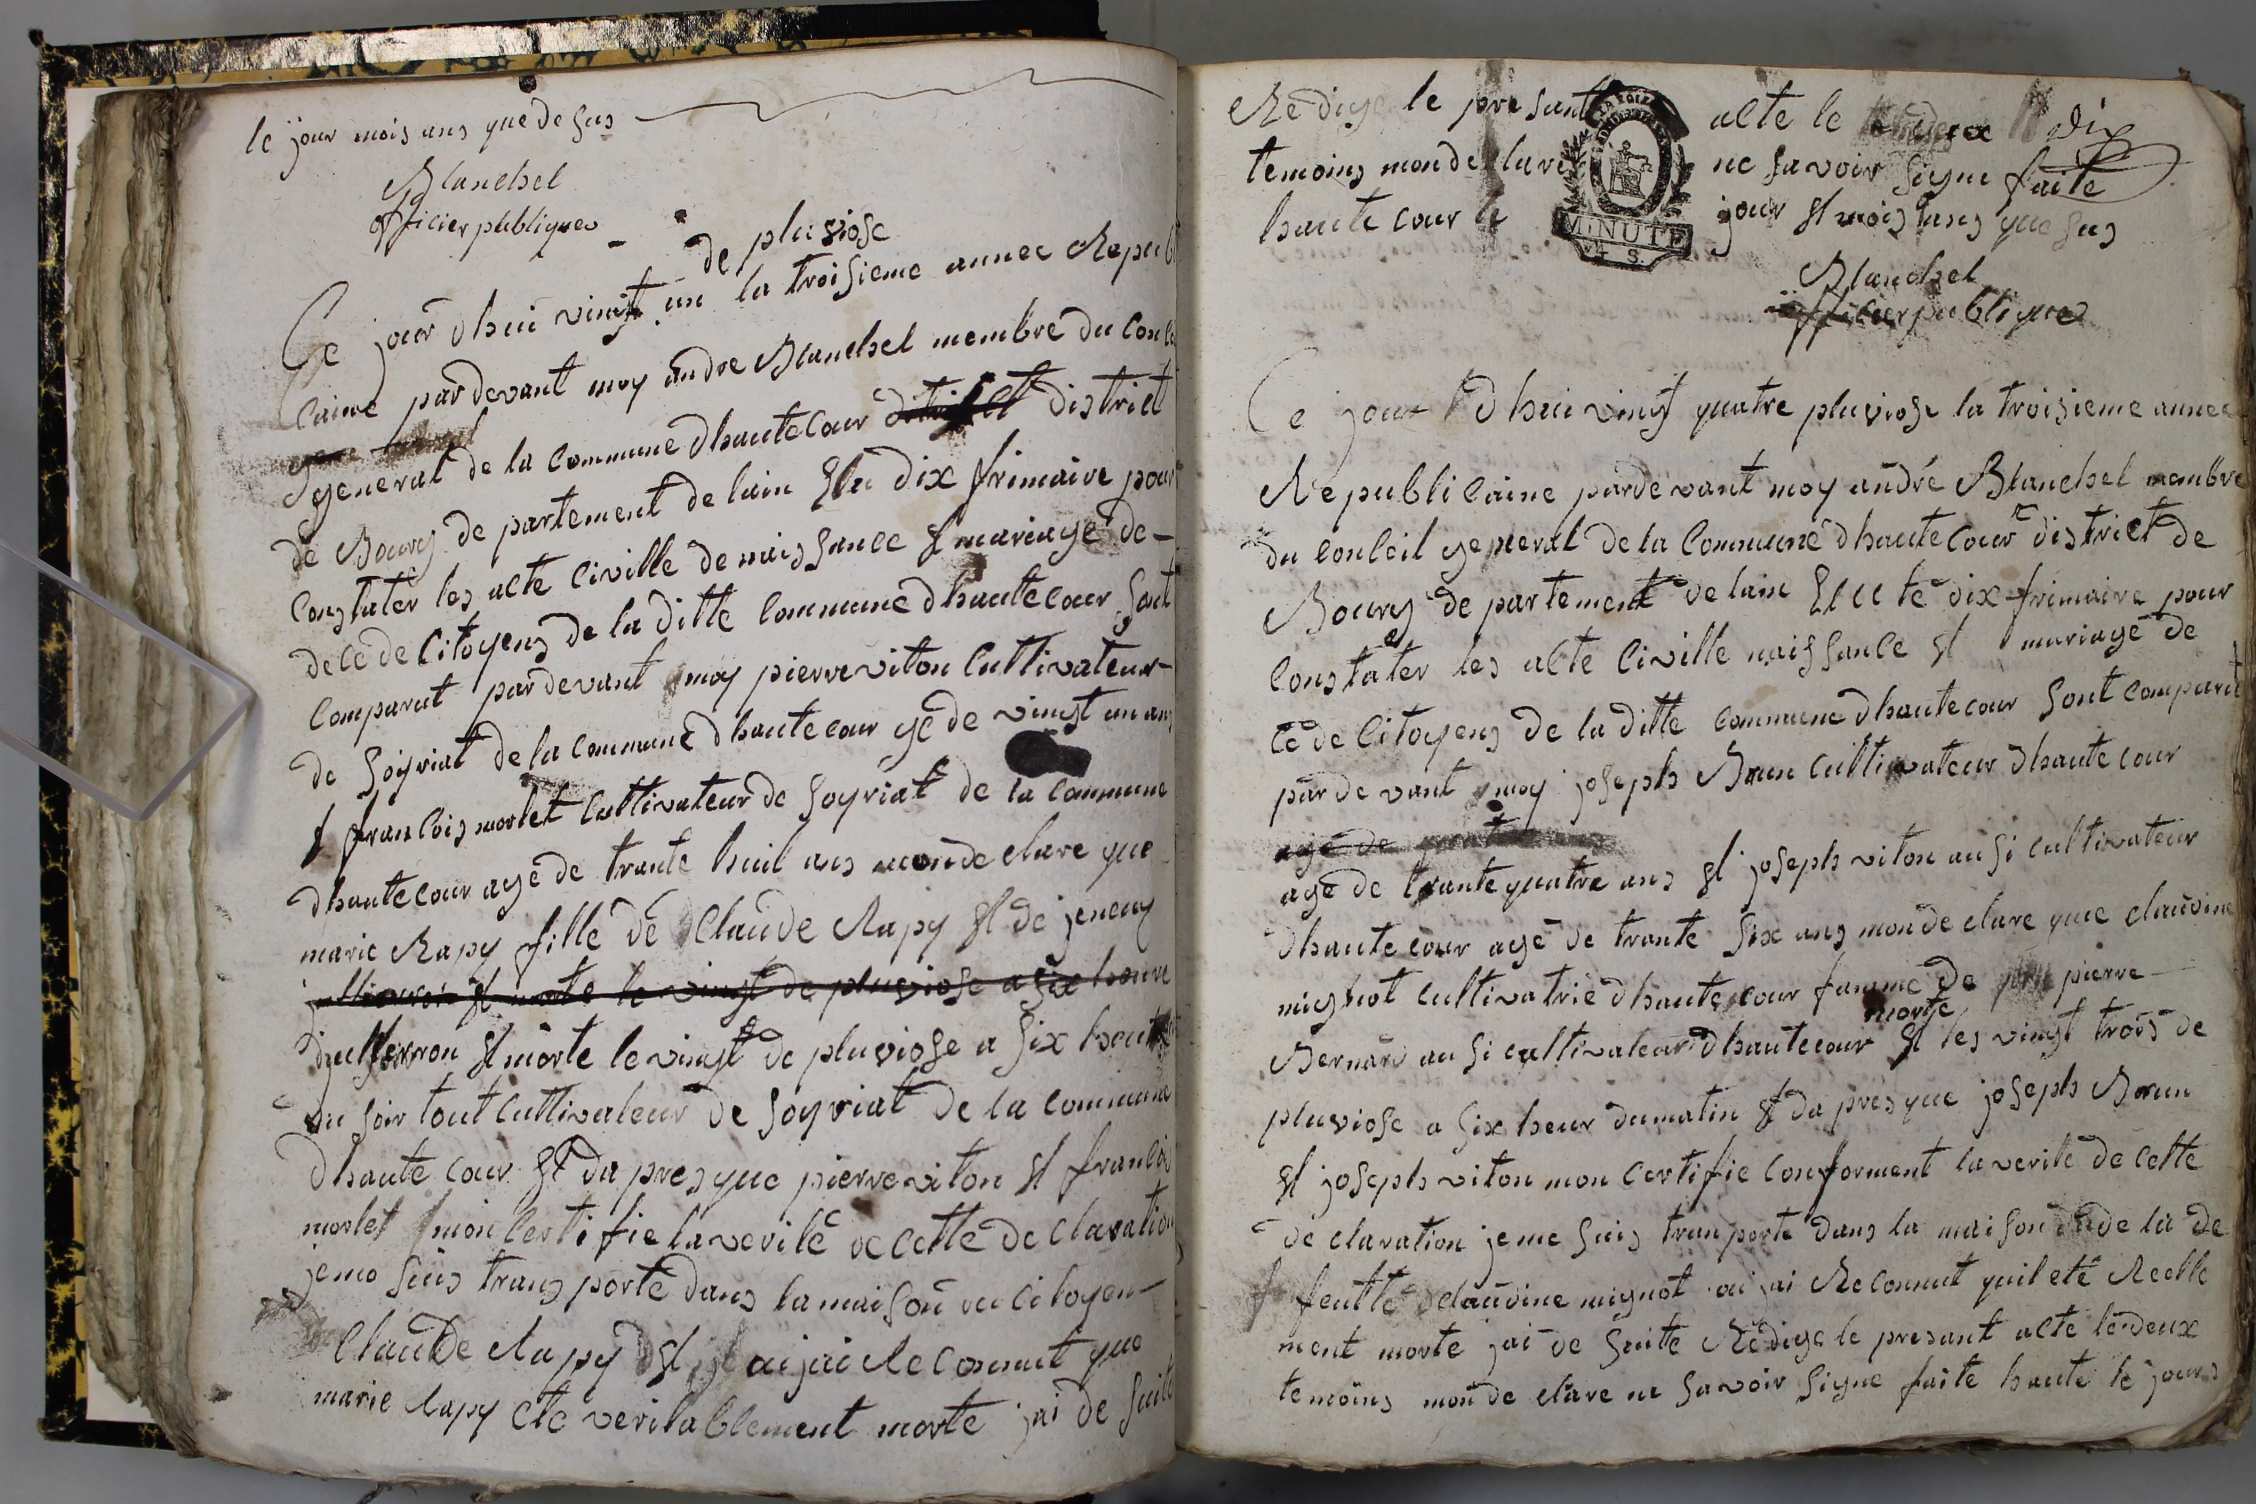 le jour mois ans que de sus
Blanchel
officier publique
de pluviose
Ce jour dhui vingt un la troisieme annee Republ
caine pardevant moy andre Blanchel membre du conce
general de la commune dhautecour district
de Bourg de partement de lain Elu dix frimaire pour
constater les acte civille de naissance et mariage de
dece de citoyens de la ditte commune dhautecour sont
comparut pardevant moy pierre viton cultivateur
de soyriat de la commune dhautecour gé de vingt un ans
et francois morlet cultivateur de soyriat de la commune
dhautecour agé de trante huit ans monde clare que
marie Rapy fille de Claude Rapy et de jeneuy
et morte le vingt de pluviose a six heure
et morte le vingt de pluviose a six heur
du soir tout cultivateur de soyriat de la commune
dhaute cour et da pres que pierre viton et francoi
morlet mon certifie la verité de cette de claration
jeme suis trans porté dans la maison du citoyen
Claude Rapy et jai Reconnut que
marie Rapy eté veritablement morte jai de suite
Redige le presant acte le deux dix
temoins monde clare ne savoir signe faite
haute cour le jour et mois ans que sus
MINUTE
4 S.
Blanchel
officier publique
Ce jour dhui vingt quatre pluviose la troisieme annee
Republicaine pardevant moy andré Blanchel membre
du conceil general de la Commune dhautecour district de
Bourg de partement de lain Elu te dix frimaire pour
constater les acte civille naissance et mariage de
cé de citoyens de la ditte commune dhautecour sont comparu
par de vant moy joseph Brun cultivateur dhautecour
agé de
agé de trante quatre ans et joseph viton ausi cultivateur
dhautecour agé de trante six ans monde clare que claudine
mignot cultivatrie dhautecour famme de pierre
morte
Bernard ausi cultivateur dhautecour et les vingt trois de
pluviose a six heur dumatin et da prés que joseph Brun
et joseph viton mon certifie conforment la verité de cette
de claration jeme suis tranporté dans la maison de la de
feutte claudine mignot ou jai Reconnut quil eté Reelle
ment morte jai de suite Rédige le presant acte le deux
temoins mon de clare ne savoir signe faite haute le jour